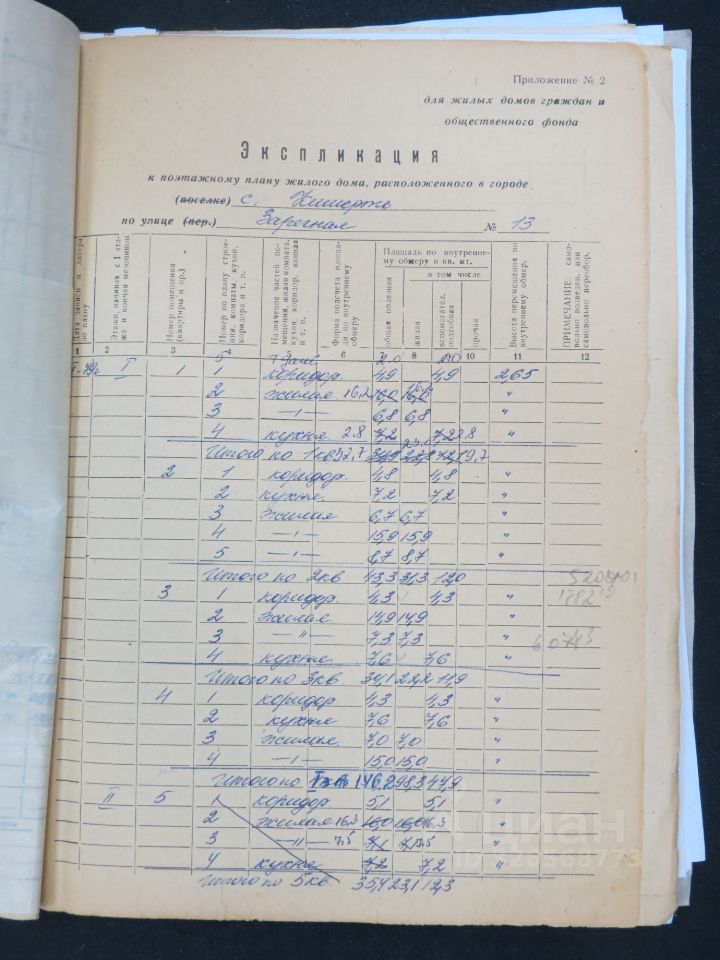 Приложение № 2
для жилых домов граждан и
общественного фонда
Экспликация
к поэтажному плану жилого дома, расположенного в городе
(поселке) с. Кишерть
по улице (пер.) Заречная № 13
Дата записи и литера по плану
Этажи, начиная с 1 этажа и кончая мезонином
Номер помещения (квартиры и пр.)
Номер по плану строения, комнаты, кухни, коридора и т. п.
Назначение частей помещения, жилая комната, кухня, коридор, ванная и т. п.
Форма подсчета площади по внутреннему обмеру
Площадь по внутреннему обмеру в кв. мт.
в том числе
общая полезная
жилая
вспомогател. подсобная
прочая
Высота перемещения по внутреннему обмер.
ПРИМЕЧАНИЕ: самовольно возведен. или самовольно переобор.
1 2 3 6 8 10 11 12
I 1 1 коридор. 4,9 4,9 2,65
2 жилая 16,2 16,0 16,0 "
3 —ı— 6,8 6,8
4 кухня 2.8 7,2 7,2 2.8 "
Итого по 1 кв 32,7 34,9 22,8 9,7
2 1 коридор. 4,8 4,8 "
2 кухня. 7,2 7,2 "
3 жилая 6,7 6,7 "
4 —ı— 15,9 15,9 "
5 —ı— 8,7 8,7 "
Итого по 2 кв 43,3 31,3 12,0
3 1 коридор. 4,3 4,3 "
2 жилая 14,9 14,9 "
3 —"— 7,3 7,3 "
4 кухня. 7,6 7,6 "
Итого по 3 кв 34,1 22,2 11,9
4 1 коридор 4,3 4,3 "
2 кухня 7,6 7,6 "
3 жилая. 7,0 7,0 "
4 —ı— 15,0 15,0 "
Итого по I эт 146,2 98,3 47,9
II 5 1 коридор 5,1 5,1 "
2 жилая 16.3 16,0 16,0 16.3 "
3 —"— 7,5 7,1 7,1 7,5 "
4 кухня 7,2 7,2 "
Итого по 5 кв. 35,4 23,1 12,3
циан